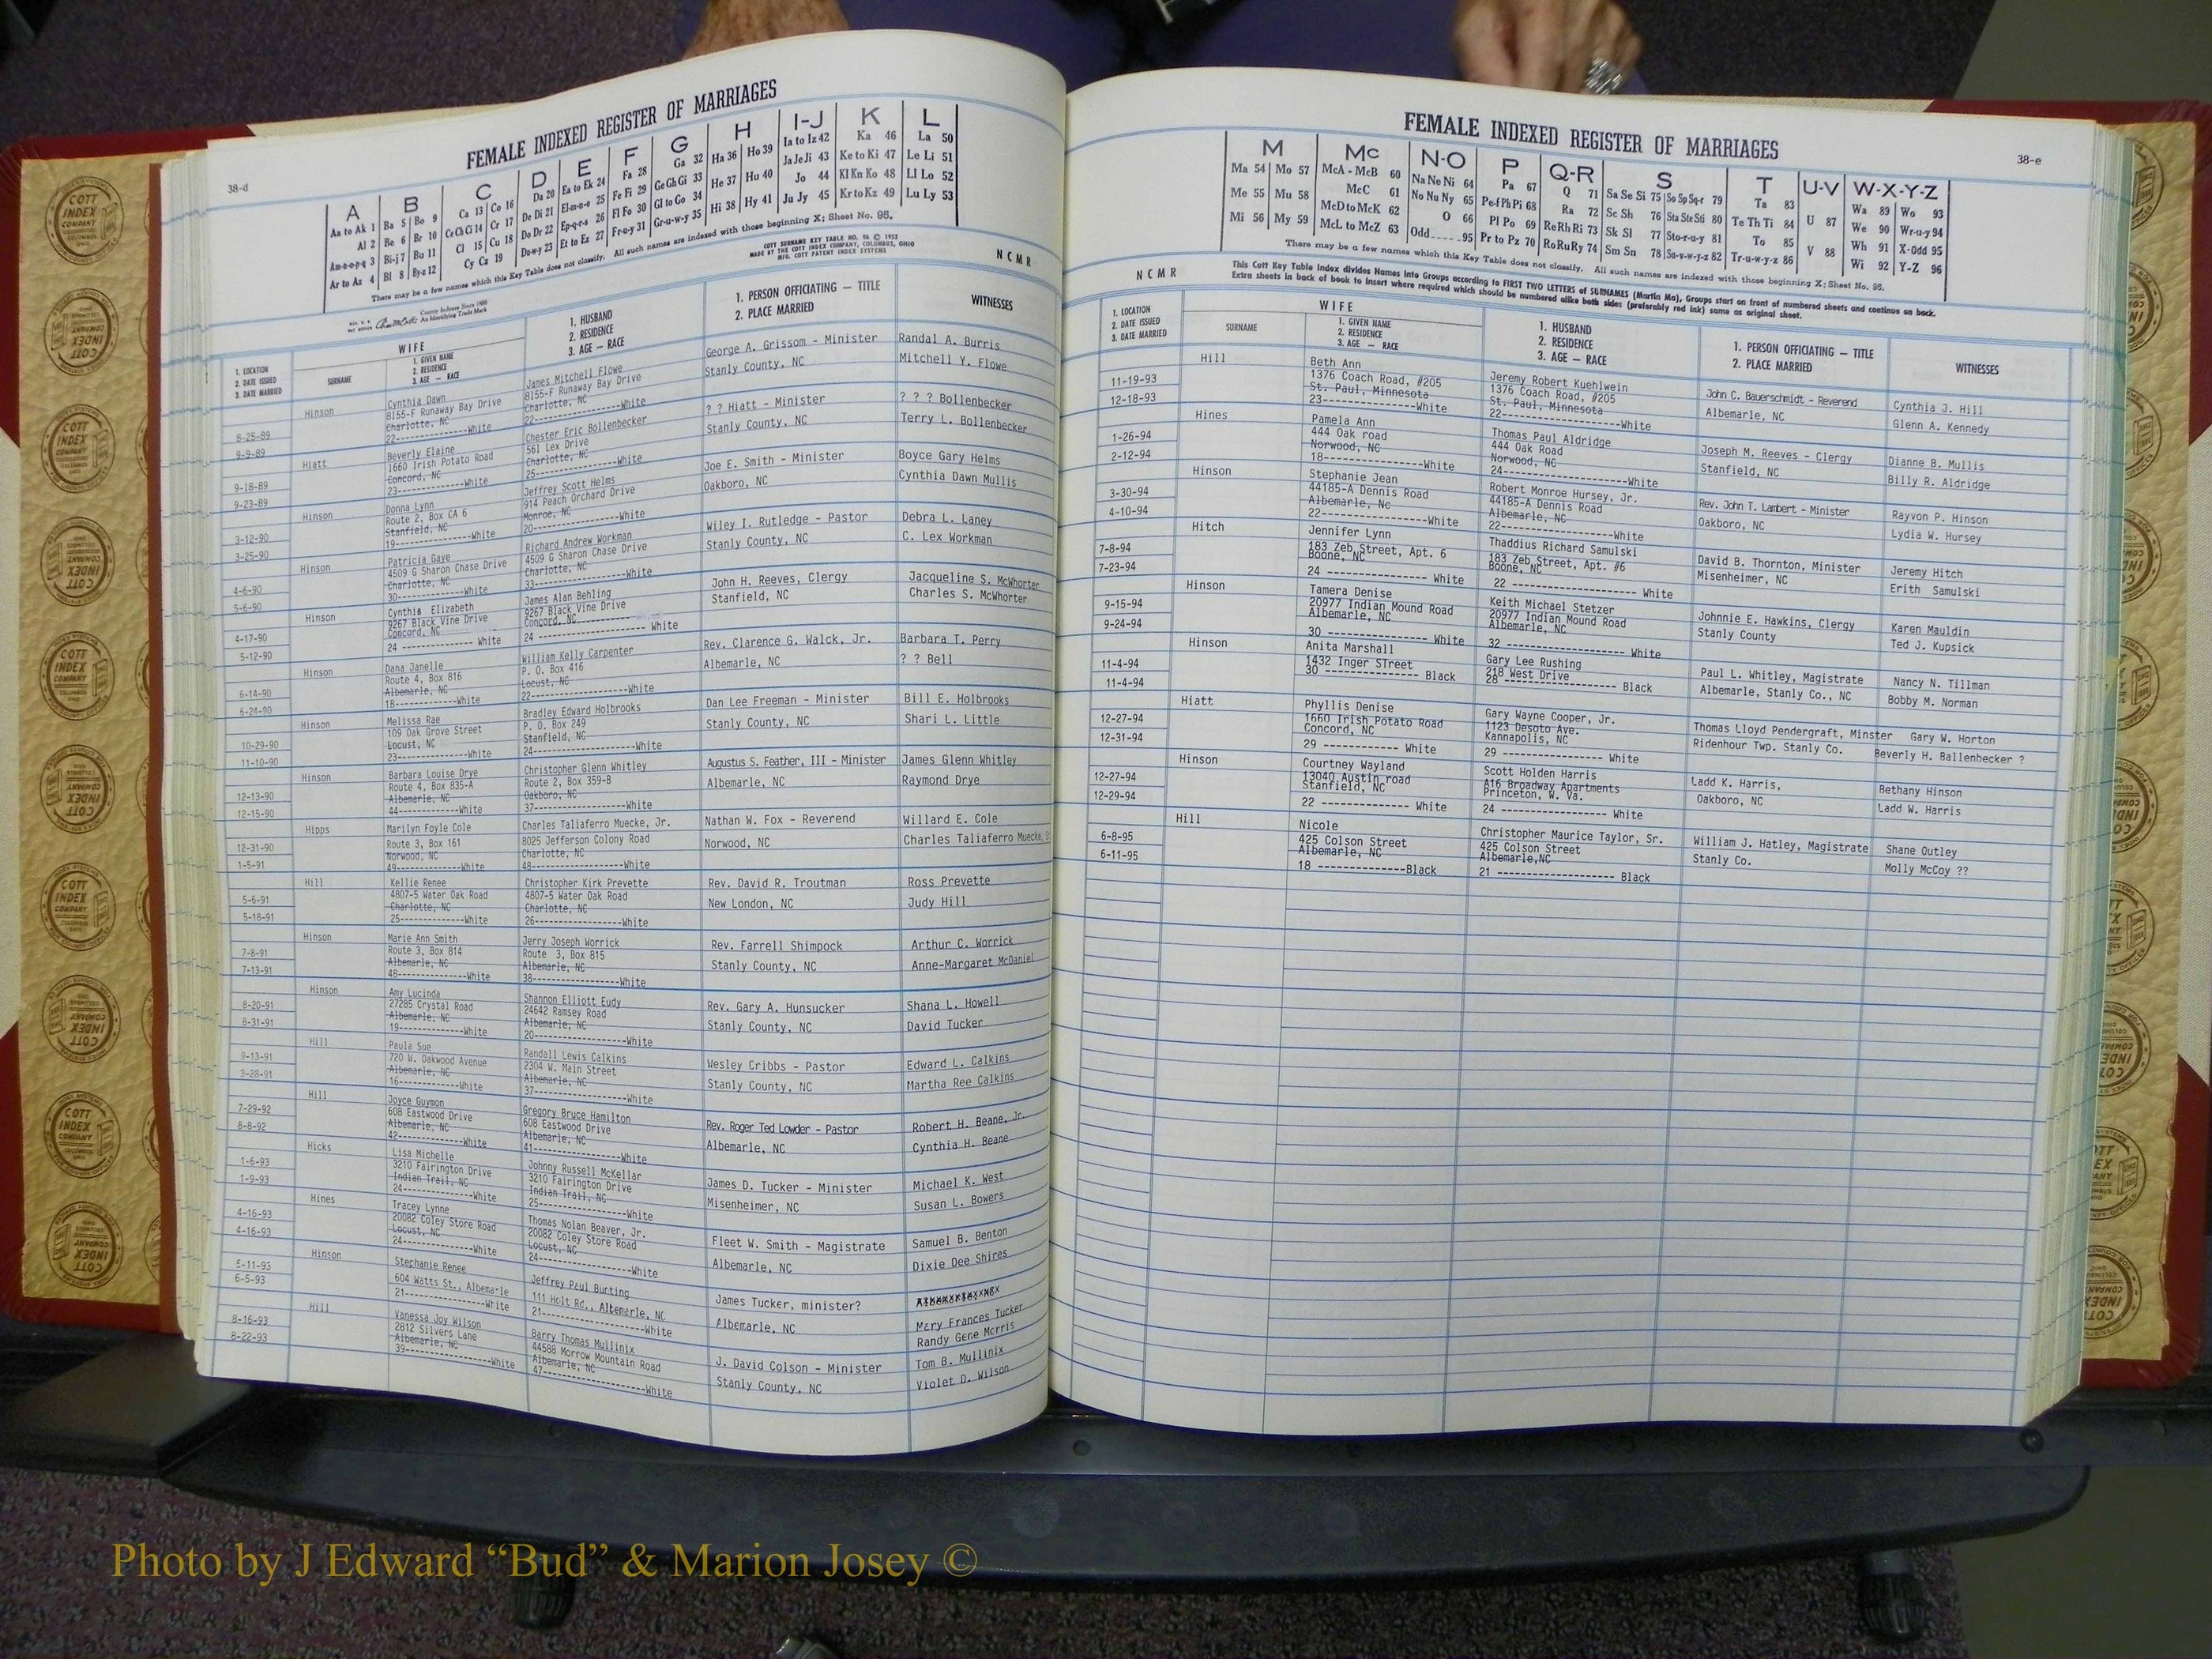 38-d
FEMALE INDEXED REGISTER OF MARRIAGES
A B C D E F G H I-J K L
Aa to Ak 1 Ba 5 Bo 9 Ca 13 Co 16 Da 20 Ea to Ek 24 Fa 28 Ga 32 Ha 36 Ho 39 Ia to Iz 42 Ka 46 La 50
Al 2 Be 6 Br 10 Ce Ch Ci 14 Cr 17 De Di 21 El-m-n-o 25 Fe Fi 29 Ge Gh Gi 33 He 37 Hu 40 Ja Je Ji 43 Ke to Ki 47 Le Li 51
Am-n-o-p-q 3 Bi-j 7 Bu 11 Cl 15 Cu 18 Do Dr 22 Ep-q-r-s 26 Fl Fo 30 Gl to Go 34 Hi 38 Hy 41 Jo 44 Kl Kn Ko 48 Ll Lo 52
Ar to Az 4 Bl 8 By-z 12 Cy Cz 19 Du-w-y 23 Et to Ez 27 Fr-u-y 31 Gr-u-w-y 35 Ju Jy 45 Kr to Kz 49 Lu Ly 53
There may be a few names which this Key Table does not classify. All such names are indexed with those beginning X; Sheet No. 95.
COTT SURNAME KEY TABLE NO. 96 © 1952
MADE BY THE COTT INDEX COMPANY, COLUMBUS, OHIO
MFG. COTT PATENT INDEX SYSTEMS
County Indexes Since 1888
An Identifying Trade Mark
N C M R
1. LOCATION
2. DATE ISSUED
3. DATE MARRIED
WIFE
SURNAME
1. GIVEN NAME
2. RESIDENCE
3. AGE — RACE
1. HUSBAND
2. RESIDENCE
3. AGE — RACE
1. PERSON OFFICIATING — TITLE
2. PLACE MARRIED
WITNESSES
8-25-89
9-9-89
Hinson
Cynthia Dawn
8155-F Runaway Bay Drive
Charlotte, NC
22-------------White
James Mitchell Flowe
8155-F Runaway Bay Drive
Charlotte, NC
22-------------White
George A. Grissom - Minister
Stanly County, NC
Randal A. Burris
Mitchell Y. Flowe
9-18-89
9-23-89
Hiatt
Beverly Elaine
1660 Irish Potato Road
Concord, NC
23-------------White
Chester Eric Bollenbecker
561 Lex Drive
Charlotte, NC
25-------------White
? ? Hiatt - Minister
Stanly County, NC
? ? ? Bollenbecker
Terry L. Bollenbecker
3-12-90
3-25-90
Hinson
Donna Lynn
Route 2, Box CA 6
Stanfield, NC
19-------------White
Jeffrey Scott Helms
914 Peach Orchard Drive
Monroe, NC
20-------------White
Joe E. Smith - Minister
Oakboro, NC
Boyce Gary Helms
Cynthia Dawn Mullis
4-6-90
5-6-90
Hinson
Patricia Gaye
4509 G Sharon Chase Drive
Charlotte, NC
30-------------White
Richard Andrew Workman
4509 G Sharon Chase Drive
Charlotte, NC
33-------------White
Wiley I. Rutledge - Pastor
Stanly County, NC
Debra L. Laney
C. Lex Workman
4-17-90
5-12-90
Hinson
Cynthis Elizabeth
9267 Black Vine Drive
Concord, NC
24 ------------- White
James Alan Behling
9267 Black Vine Drive
Concord, NC
24 ------------- White
John H. Reeves, Clergy
Stanfield, NC
Jacqueline S. McWhorter
Charles S. McWhorter
6-14-90
6-24-90
Hinson
Dana Janelle
Route 4, Box 816
Albemarle, NC
18-------------White
William Kelly Carpenter
P. O. Box 416
Locust, NC
22-------------White
Rev. Clarence G. Walck, Jr.
Albemarle, NC
Barbara T. Perry
? ? Bell
10-29-90
11-10-90
Hinson
Melissa Rae
109 Oak Grove Street
Locust, NC
23-------------White
Bradley Edward Holbrooks
P. O. Box 249
Stanfield, NC
24-------------White
Dan Lee Freeman - Minister
Stanly County, NC
Bill E. Holbrooks
Shari L. Little
12-13-90
12-15-90
Hinson
Barbara Louise Drye
Route 4, Box 835-A
Albemarle, NC
44-------------White
Christopher Glenn Whitley
Route 2, Box 359-B
Oakboro, NC
37-------------White
Augustus S. Feather, III - Minister
Albemarle, NC
James Glenn Whitley
Raymond Drye
12-31-90
1-5-91
Hipps
Marilyn Foyle Cole
Route 3, Box 161
Norwood, NC
49-------------White
Charles Taliaferro Muecke, Jr.
8025 Jefferson Colony Road
Charlotte, NC
48-------------White
Nathan W. Fox - Reverend
Norwood, NC
Willard E. Cole
Charles Taliaferro Muecke,
5-6-91
5-18-91
Hill
Kellie Renee
4807-5 Water Oak Road
Charlotte, NC
25-------------White
Christopher Kirk Prevette
4807-5 Water Oak Road
Charlotte, NC
26-------------White
Rev. David R. Troutman
New London, NC
Ross Prevette
Judy Hill
7-8-91
7-13-91
Hinson
Marie Ann Smith
Route 3, Box 814
Albemarle, NC
48-------------White
Jerry Joseph Worrick
Route 3, Box 815
Albemarle, NC
38-------------White
Rev. Farrell Shimpock
Stanly County, NC
Arthur C. Worrick
Anne-Margaret McDaniel
8-20-91
8-31-91
Hinson
Amy Lucinda
27285 Crystal Road
Albemarle, NC
19-------------White
Shannon Elliott Eudy
24642 Ramsey Road
Albemarle, NC
20-------------White
Rev. Gary A. Hunsucker
Stanly County, NC
Shana L. Howell
David Tucker
9-13-91
9-28-91
Hill
Paula Sue
720 W. Oakwood Avenue
Albemarle, NC
16-------------White
Randall Lewis Calkins
2304 W. Main Street
Albemarle, NC
37-------------White
Wesley Cribbs - Pastor
Stanly County, NC
Edward L. Calkins
Martha Ree Calkins
7-29-92
8-8-92
Hill
Joyce Guymon
608 Eastwood Drive
Albemarle, NC
42-------------White
Gregory Bruce Hamilton
608 Eastwood Drive
Albemarle, NC
41-------------White
Rev. Roger Ted Lowder - Pastor
Albemarle, NC
Robert H. Beane, Jr.
Cynthia H. Beane
1-6-93
1-9-93
Hicks
Lisa Michelle
3210 Fairington Drive
Indian Trail, NC
24-------------White
Johnny Russell McKellar
3210 Fairington Drive
Indian Trail, NC
25-------------White
James D. Tucker - Minister
Misenheimer, NC
Michael K. West
Susan L. Bowers
4-16-93
4-16-93
Hines
Tracey Lynne
20082 Coley Store Road
Locust, NC
24-------------White
Thomas Nolan Beaver, Jr.
20082 Coley Store Road
Locust, NC
24-------------White
Fleet W. Smith - Magistrate
Albemarle, NC
Samuel B. Benton
Dixie Dee Shires
5-11-93
6-5-93
Hinson
Stephanie Renee
604 Watts St., Albemarle
21-------------White
Jeffrey Paul Burting
111 Holt Rd., Albemarle, NC
21-------------White
James Tucker, minister?
Albemarle, NC
Mary Frances Tucker
Randy Gene Morris
8-16-93
8-22-93
Hill
Vanessa Joy Wilson
2812 Silvers Lane
Albemarle, NC
39-------------White
Barry Thomas Mullinix
44588 Morrow Mountain Road
Albemarle, NC
47-------------White
J. David Colson - Minister
Stanly County, NC
Tom B. Mullinix
Violet D. Wilson
FEMALE INDEXED REGISTER OF MARRIAGES
38-e
M Mc N-O P Q-R S T U-V W-X-Y-Z
Ma 54 Mo 57 McA - McB 60 Na Ne Ni 64 Pa 67 Q 71 Sa Se Si 75 So Sp Sq-r 79 Ta 83 U 87 Wa 89 Wo 93
Me 55 Mu 58 McC 61 No Nu Ny 65 Pe-f Ph Pi 68 Ra 72 Sc Sh 76 Sta Ste Sti 80 Te Th Ti 84 V 88 We 90 Wr-u-y 94
Mi 56 My 59 McD to McK 62 O 66 Pl Po 69 Re Rh Ri 73 Sk Sl 77 Sto-r-u-y 81 To 85 Wh 91 X-Odd 95
McL to McZ 63 Odd.....95 Pr to Pz 70 Ro Ru Ry 74 Sm Sn 78 Su-v-w-y-z 82 Tr-u-w-y-z 86 Wi 92 Y-Z 96
There may be a few names which this Key Table does not classify. All such names are indexed with those beginning X; Sheet No. 95.
N C M R
This Cott Key Table Index divides Names into Groups according to FIRST TWO LETTERS of SURNAMES (Martin Ma), Groups start on front of numbered sheets and continue on back.
Extra sheets in back of book to insert where required which should be numbered alike both sides (preferably red ink) same as original sheet.
1. LOCATION
2. DATE ISSUED
3. DATE MARRIED
WIFE
SURNAME
1. GIVEN NAME
2. RESIDENCE
3. AGE — RACE
1. HUSBAND
2. RESIDENCE
3. AGE — RACE
1. PERSON OFFICIATING — TITLE
2. PLACE MARRIED
WITNESSES
11-19-93
12-18-93
Hill
Beth Ann
1376 Coach Road, #205
St. Paul, Minnesota
23-------------White
Jeremy Robert Kuehlwein
1376 Coach Road, #205
St. Paul, Minnesota
22-------------White
John C. Bauerschmidt - Reverend
Albemarle, NC
Cynthia J. Hill
Glenn A. Kennedy
1-26-94
2-12-94
Hines
Pamela Ann
444 Oak road
Norwood, NC
18-------------White
Thomas Paul Aldridge
444 Oak Road
Norwood, NC
24-------------White
Joseph M. Reeves - Clergy
Stanfield, NC
Dianne B. Mullis
Billy R. Aldridge
3-30-94
4-10-94
Hinson
Stephanie Jean
44185-A Dennis Road
Albemarle, Nc
22-------------White
Robert Monroe Hursey, Jr.
44185-A Dennis Road
Albemarle, NC
22-------------White
Rev. John T. Lambert - Minister
Oakboro, NC
Rayvon P. Hinson
Lydia W. Hursey
7-8-94
7-23-94
Hitch
Jennifer Lynn
183 Zeb Street, Apt. 6
Boone, NC
24 ------------- White
Thaddius Richard Samulski
183 Zeb Street, Apt. #6
Boone, NC
22 ------------- White
David B. Thornton, Minister
Misenheimer, NC
Jeremy Hitch
Erith Samulski
9-15-94
9-24-94
Hinson
Tamera Denise
20977 Indian Mound Road
Albemarle, NC
30 ------------- White
Keith Michael Stetzer
20977 Indian Mound Road
Albemarle, NC
32 ------------- White
Johnnie E. Hawkins, Clergy
Stanly County
Karen Mauldin
Ted J. Kupsick
11-4-94
11-4-94
Hinson
Anita Marshall
1432 Inger Street
30 ------------- Black
Gary Lee Rushing
218 West Drive
28 ------------- Black
Paul L. Whitley, Magistrate
Albemarle, Stanly Co., NC
Nancy N. Tillman
Bobby M. Norman
12-27-94
12-31-94
Hiatt
Phyllis Denise
1660 Irish Potato Road
Concord, NC
29 ------------ White
Gary Wayne Cooper, Jr.
1123 Desoto Ave.
Kannapolis, NC
29 ------------- White
Thomas Lloyd Pendergraft, Minster
Ridenhour Twp. Stanly Co.
Gary W. Horton
Beverly H. Ballenbecker ?
12-27-94
12-29-94
Hinson
Courtney Wayland
13040 Austin road
Stanfield, NC
22 ------------- White
Scott Holden Harris
A16 Broadway Apartments
Princeton, W. Va.
24 ------------- White
Ladd K. Harris,
Oakboro, NC
Bethany Hinson
Ladd W. Harris
6-8-95
6-11-95
Hill
Nicole
425 Colson Street
Albemarle, NC
18 -------------Black
Christopher Maurice Taylor, Sr.
425 Colson Street
Albemarle,NC
21 ------------- Black
William J. Hatley, Magistrate
Stanly Co.
Shane Outley
Molly McCoy ??
COTT INDEX COMPANY
Photo by J Edward “Bud” & Marion Josey ©